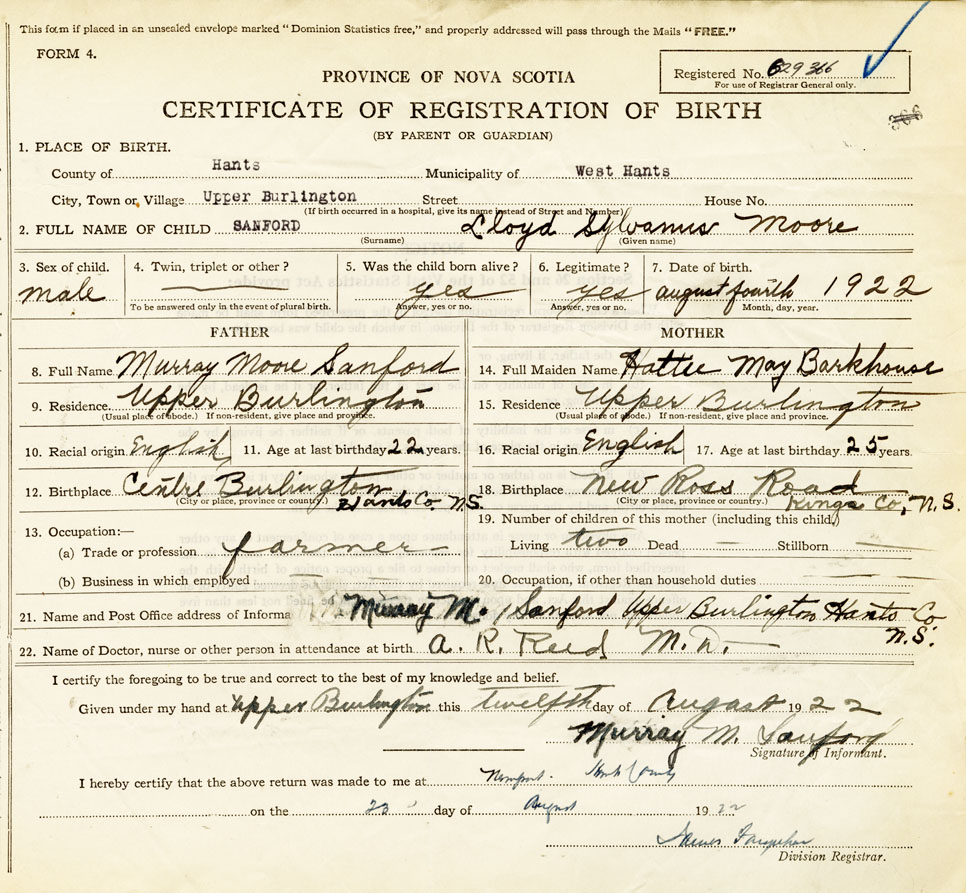 This form if placed in an unsealed envelope marked "Dominion Statistics free," and properly addressed will pass through the Mails "FREE."
FORM 4.
PROVINCE OF NOVA SCOTIA
Registered No. 629366
For use of Registrar General only.
CERTIFICATE OF REGISTRATION OF BIRTH
366
(BY PARENT OR GUARDIAN)
1. PLACE OF BIRTH.
County of Hants Municipality of West Hants
City, Town or Village Upper Burlington Street House No.
(If birth occurred in a hospital, give its name instead of Street and Number)
2. FULL NAME OF CHILD SANFORD Lloyd Sylvanus Moore
(Surname) (Given name)
3. Sex of child. 4. Twin, triplet or other? 5. Was the child born alive? 6. Legitimate? 7. Date of birth.
male — yes yes august fourth 1922
To be answered only in the event of plural birth. Answer, yes or no. Answer, yes or no. Month, day, year.
FATHER MOTHER
8. Full Name Murray Moore Sanford 14. Full Maiden Name Hattie May Barkhouse
9. Residence. Upper Burlington 15. Residence Upper Burlington
(Usual place of abode.) If non-resident, give place and province. (Usual place of abode.) If non-resident, give place and province.
10. Racial origin English 11. Age at last birthday 22 years. 16. Racial origin English 17. Age at last birthday. 25 years.
12. Birthplace Centre Burlington Hants Co. N.S. 18. Birthplace New Ross Road Kings Co, N.S.
(City or place, province or country.) (City or place, province or country.)
13. Occupation:— 19. Number of children of this mother (including this child,)
(a) Trade or profession farmer Living two Dead — Stillborn —
(b) Business in which employed — 20. Occupation, if other than household duties —
21. Name and Post Office address of Informa Murray M. Sanford Upper Burlington Hants Co N.S.
22. Name of Doctor, nurse or other person in attendance at birth A. R. Reid M.D.
I certify the foregoing to be true and correct to the best of my knowledge and belief.
Given under my hand at Upper Burlington this twelfth day of August 1922
Murray M. Sanford
Signature of Informant.
I hereby certify that the above return was made to me at Newport. Hants County
on the day of August 1922
James Farquhar
Division Registrar.